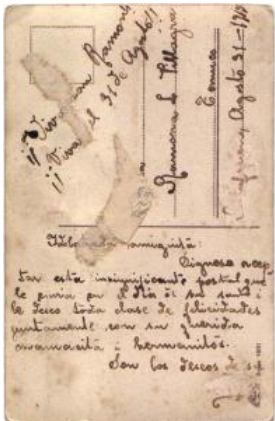 ¡¡Viva San Ramón!!
¡¡Viva el 31 de Agosto!!
Ramona L. Villagra
Temuco
Agosto 31-19
amiguita:
Dignese acep
tar esta insignificante postal que
le envio en el dia de su santo i
le deseo toda clase de felicidades
juntamente con su querida
mamasita i hermanitos.
Son los deseos de s